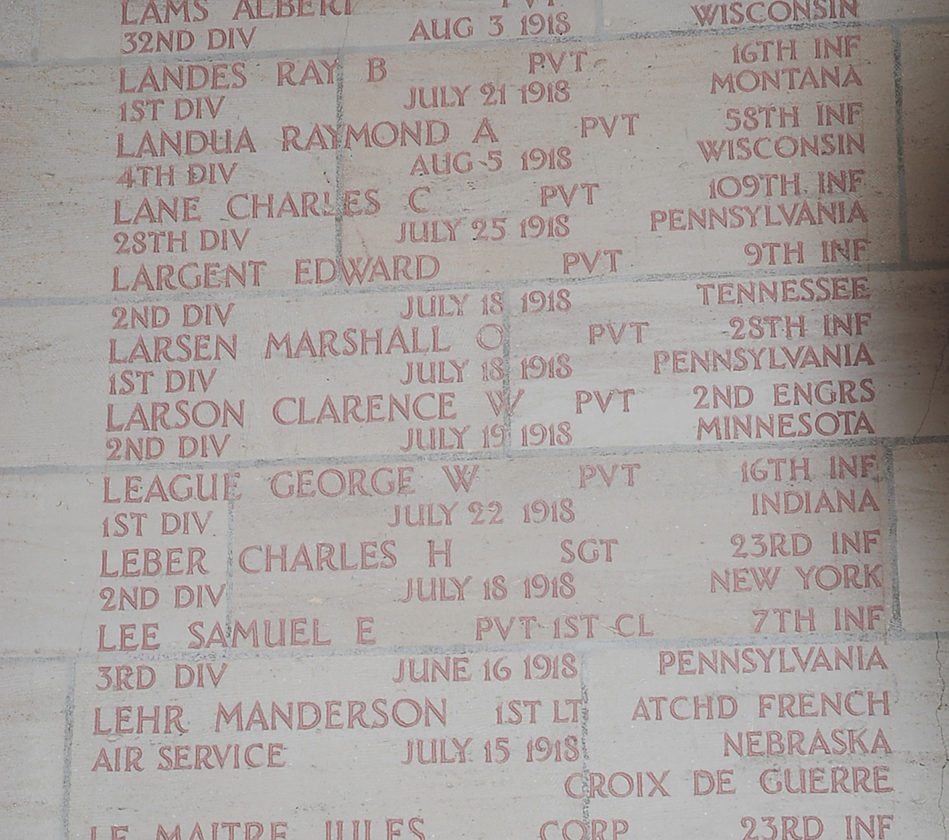 LAMS ALBERT PVT
32ND DIV AUG 3 1918 WISCONSIN
LANDES RAY B PVT 16TH INF
1ST DIV JULY 21 1918 MONTANA
LANDUA RAYMOND A PVT 58TH INF
4TH DIV AUG 5 1918 WISCONSIN
LANE CHARLES C PVT 109TH INF
28TH DIV JULY 25 1918 PENNSYLVANIA
LARGENT EDWARD PVT 9TH INF
2ND DIV JULY 18 1918 TENNESSEE
LARSEN MARSHALL O PVT 28TH INF
1ST DIV JULY 18 1918 PENNSYLVANIA
LARSON CLARENCE W PVT 2ND ENGRS
2ND DIV JULY 19 1918 MINNESOTA
LEAGUE GEORGE W PVT 16TH INF
1ST DIV JULY 22 1918 INDIANA
LEBER CHARLES H SGT 23RD INF
2ND DIV JULY 18 1918 NEW YORK
LEE SAMUEL E PVT 1ST CL 7TH INF
3RD DIV JUNE 16 1918 PENNSYLVANIA
LEHR MANDERSON 1ST LT ATCHD FRENCH
AIR SERVICE JULY 15 1918 NEBRASKA
CROIX DE GUERRE
LE MAITRE JULES CORP 23RD INF